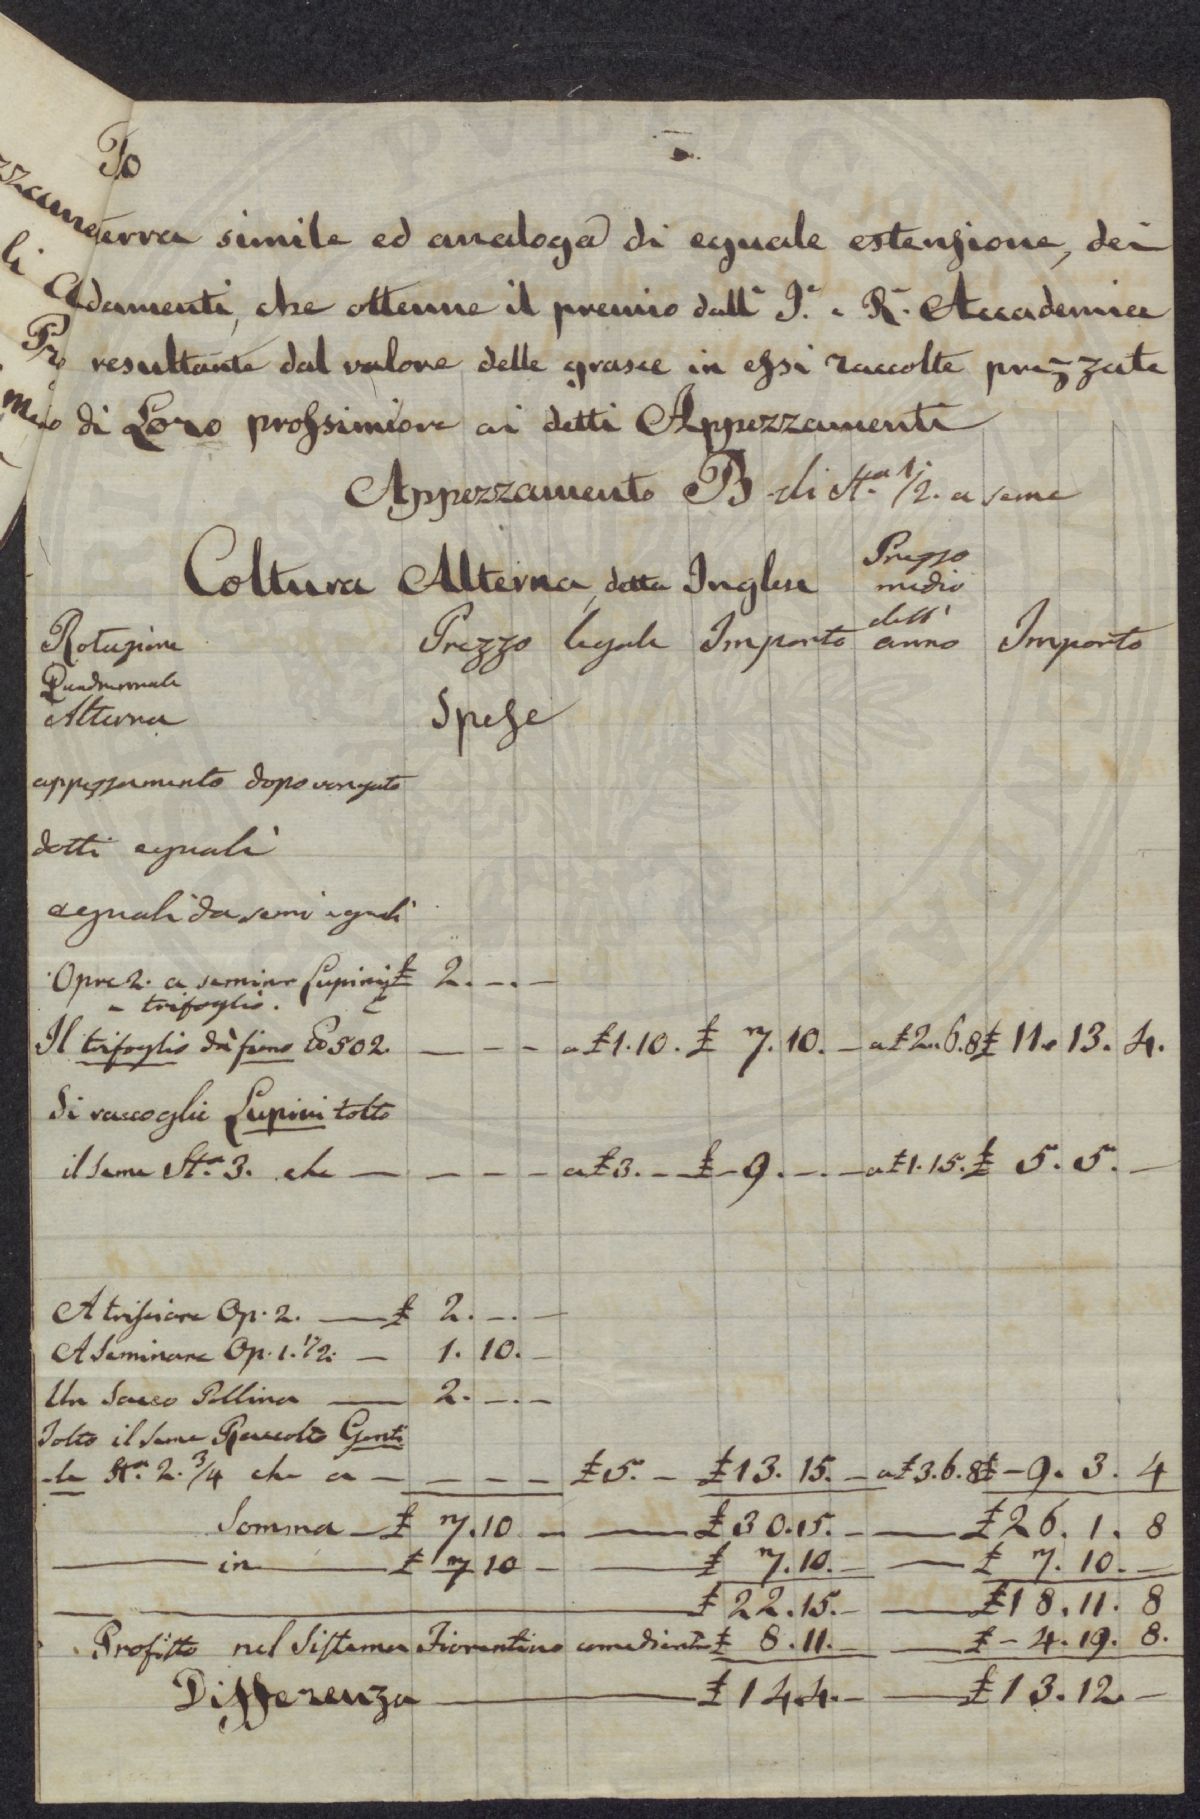 To
terra simile ed analoga di eguale estensione, dei
damenti, che ottenne il premio dall' I. e R. Accademia
resultante dal valore delle grasce in essi raccolte prezzate
di Loro prossimiore ai detti Appezzamenti
Appezzamento B di St.a 1/2. a seme
Coltura Alterna, detta Inglese
Prezzo medio dell' anno
Rotazione Prezzo legale Importo Importo
Quadriennale
Alterna Spese
appezzamento dopo vangato
dotti eguali
eguali da semi eguali
Opre 2. a seminar Lupini £ 2. -. -
e trifoglio.
Il trifoglio dà fieno 502. - - - a £ 1. 10. £ 7. 10. - a £ 2. 6. 8 £ 11. 13. 4.
Si raccoglie Lupini tolto
il seme St.a 3. che - - - - a £ 3. - £ - 9. -. - a £ 1. 15. £ 5. 5. -
A trisciare Op. 2. - £ 2. -. -
A Seminare Op. 1. 1/2. - 1. 10. -
Un Sacco Pollina - 2. -. -
Tolto il seme Raccolto Genti
-le St.a 2. 3/4 che a - - - - £ 5. - £ 13. 15. - a £ 3. 6. 8 £ - 9. 3. 4
Somma - £ 7. 10 - - £ 30. 15. - - £ 26. 1. 8
- in - £ 7 10 - - £ 7. 10. - - £ 7. 10. -
£ 22. 15. - - £ 18. 11. 8
Profitto nel Sistema Fiorentino £ 8. 11. - - £ - 4. 19. 8.
Differenza - £ 14. 4. - - £ 13. 12. -